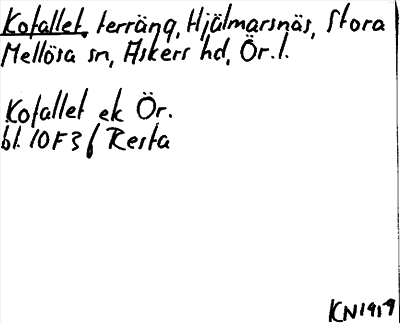 Kofallet, terräng, Hjälmarsnäs, Stora
Mellösa sn, Askers hd, Ör. l.
Kofallet ek Ör.
bl. 10F3f Resta
KN1919